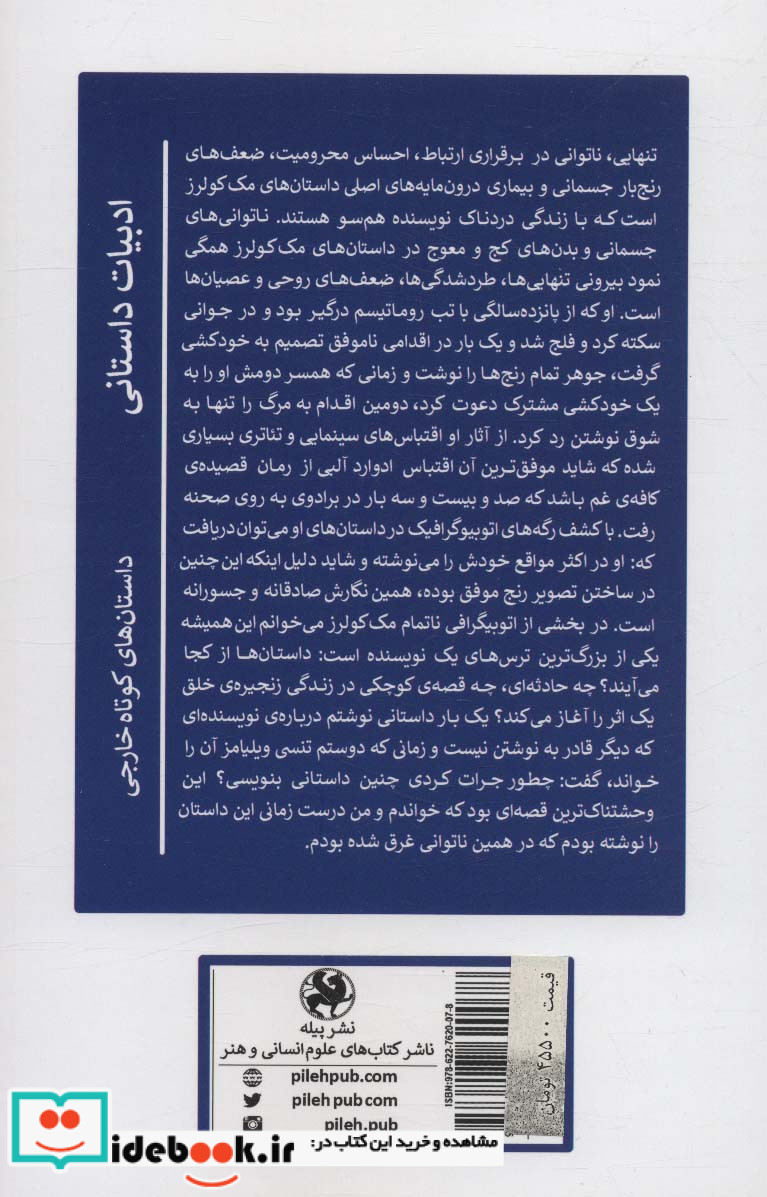 تنهایی، ناتوانی در برقراری ارتباط، احساس محرومیت، ضعف‌های
رنج‌بار جسمانی و بیماری درون‌مایه‌های اصلی داستان‌های مک‌کولرز
است که با زندگی دردناک نویسنده هم‌سو هستند. ناتوانی‌های
جسمانی و بدن‌های کج و معوج در داستان‌های مک‌کولرز همگی
نمود بیرونی تنهایی‌ها، طردشدگی‌ها، ضعف‌های روحی و عصیان‌ها
است. او که از پانزده‌سالگی با تب روماتیسم درگیر بود و در جوانی
سکته کرد و فلج شد و یک بار در اقدامی ناموفق تصمیم به خودکشی
گرفت، جوهر تمام رنج‌ها را نوشت و زمانی که همسر دومش او را به
یک خودکشی مشترک دعوت کرد، دومین اقدام به مرگ را تنها به
شوق نوشتن رد کرد. از آثار او اقتباس‌های سینمایی و تئاتری بسیاری
شده که شاید موفق‌ترین آن اقتباس ادوارد آلبی از رمان قصیده‌ی
کافه‌ی غم باشد که صد و بیست و سه بار در برادوی به روی صحنه
رفت. با کشف رگه‌های اتوبیوگرافیک در داستان‌های او می‌توان دریافت
که: او در اکثر مواقع خودش را می‌نوشته و شاید دلیل اینکه این چنین
در ساختن تصویر رنج موفق بوده، همین نگارش صادقانه و جسورانه
است. در بخشی از اتوبیگرافی ناتمام مک‌کولرز می‌خوانم این همیشه
یکی از بزرگ‌ترین ترس‌های یک نویسنده است: داستان‌ها از کجا
می‌آیند؟ چه حادثه‌ای، چه قصه‌ی کوچکی در زندگی زنجیره‌ی خلق
یک اثر را آغاز می‌کند؟ یک بار داستانی نوشتم درباره‌ی نویسنده‌ای
که دیگر قادر به نوشتن نیست و زمانی که دوستم تنسی ویلیامز آن را
خواند، گفت: چطور جرات کردی چنین داستانی بنویسی؟ این
وحشتناک‌ترین قصه‌ای بود که خواندم و من درست زمانی این داستان
را نوشته بودم که در همین ناتوانی غرق شده بودم.
ادبیات داستانی
داستان‌های کوتاه خارجی
نشر پیله
ناشر کتاب‌های علوم انسانی و هنر
pilehpub.com
pilehpub com
pileh.pub
ISBN:978-622-7620-07-8
قیمت ۴۵۵۰۰ تومان
مشاهده و خرید این کتاب در:
idebook.ir